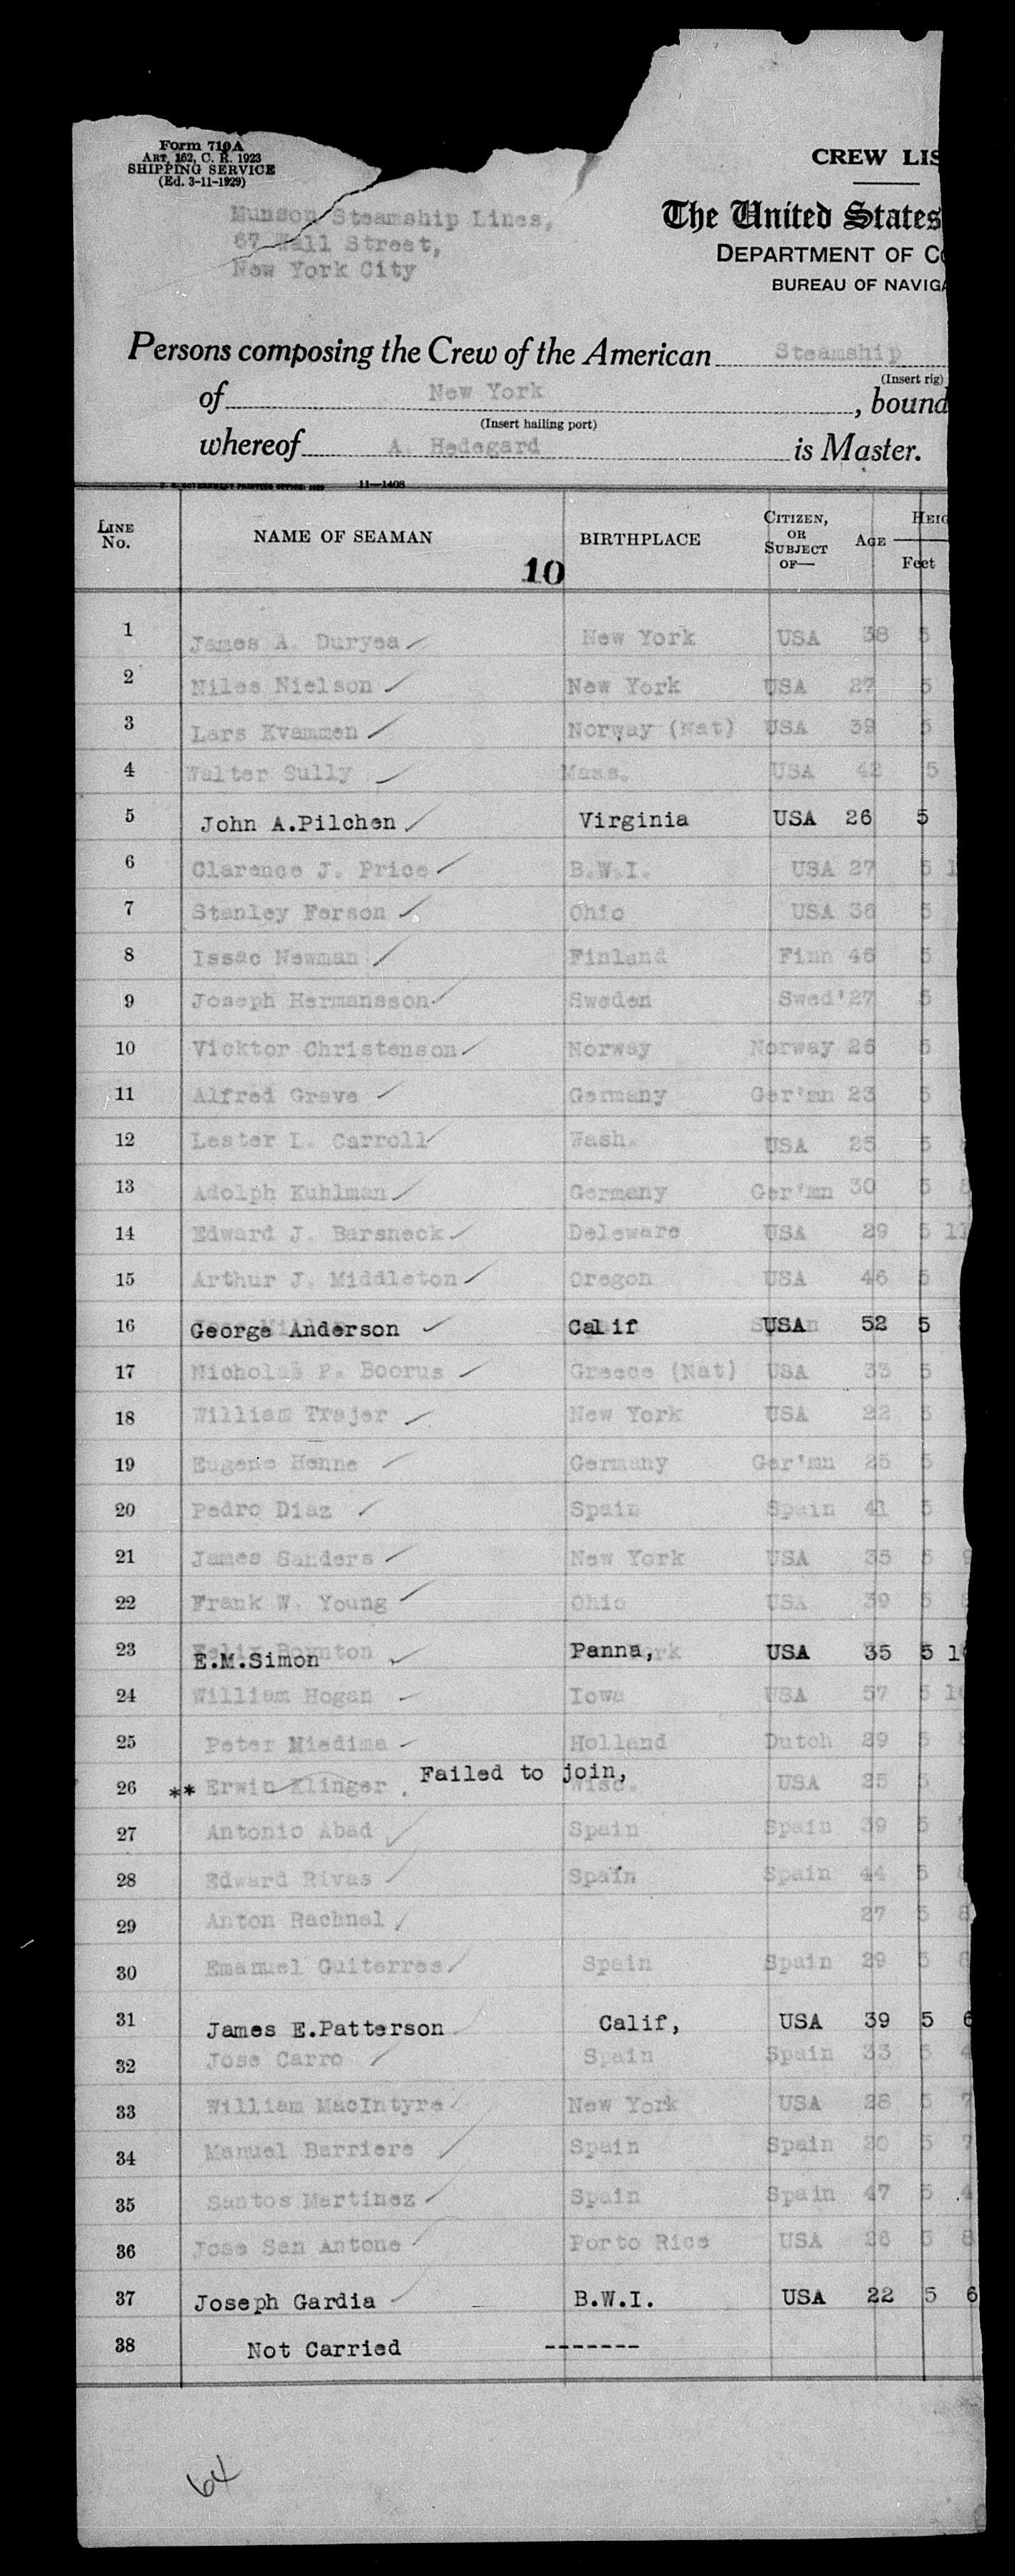 Form 710A
ART. 162, C. R. 1923
SHIPPING SERVICE
(Ed. 3-11-1929)
CREW LIS
Munson Steamship Lines,
67 Wall Street,
New York City
The United States
DEPARTMENT OF CO
BUREAU OF NAVIGA
Persons composing the Crew of the American Steamship
(Insert rig)
of New York , bound
(Insert hailing port)
whereof A. Hedegard is Master.
U. S. GOVERNMENT PRINTING OFFICE: 1929 11—1408
LINE No. NAME OF SEAMAN BIRTHPLACE CITIZEN, OR SUBJECT OF— AGE HEIG
Feet
10
1 James A. Duryea New York USA 38 5
2 Niles Nielson New York USA 27 5
3 Lars Kvammen Norway (Nat) USA 39 5
4 Walter Sully Mass. USA 42 5
5 John A.Pilchen Virginia USA 26 5
6 Clarence J. Price B.W.I. USA 27 5 1
7 Stanley Ferson Ohio USA 36 5
8 Issac Newman Finland Finn 46 5
9 Joseph Hermansson Sweden Swed' 27 5
10 Vicktor Christenson Norway Norway 26 5
11 Alfred Greve Germany Ger'mn 23 5
12 Lester L. Carroll Wash. USA 25 5
13 Adolph Kuhlman Germany Ger'mn 30 5 8
14 Edward J. Barsneck Deleware USA 29 5 11
15 Arthur J. Middleton Oregon USA 46 5
16 George Anderson Calif USA 52 5
17 Nicholas P. Boorus Greece (Nat) USA 33 5
18 William Trajer New York USA 22 5
19 Eugene Henne Germany Ger'mn 25 5
20 Pedro Diaz Spain Spain 41 5
21 James Sanders New York USA 35 5 9
22 Frank W. Young Ohio USA 39 5 8
23 E.M.Simon Panna, USA 35 5 10
24 William Hogan Iowa USA 57 5 10
25 Peter Miedima Holland Dutch 29 5
Failed to join,
26 ** Erwin Klinger Wisc. USA 25 5
27 Antonio Abad Spain Spain 39 5
28 Edward Rivas Spain Spain 44 5
29 Anton Rachnel 27 5 8
30 Emanuel Guiterres Spain Spain 29 5 8
31 James E.Patterson Calif, USA 39 5 6
32 Jose Carro Spain Spain 33 5 4
33 William MacIntyre New York USA 28 5 7
34 Manuel Barriere Spain Spain 30 5 7
35 Santos Martinez Spain Spain 47 5 4
36 Jose San Antone Porto Rico USA 26 5 8
37 Joseph Gardia B.W.I. USA 22 5 6
38 Not Carried -------
64